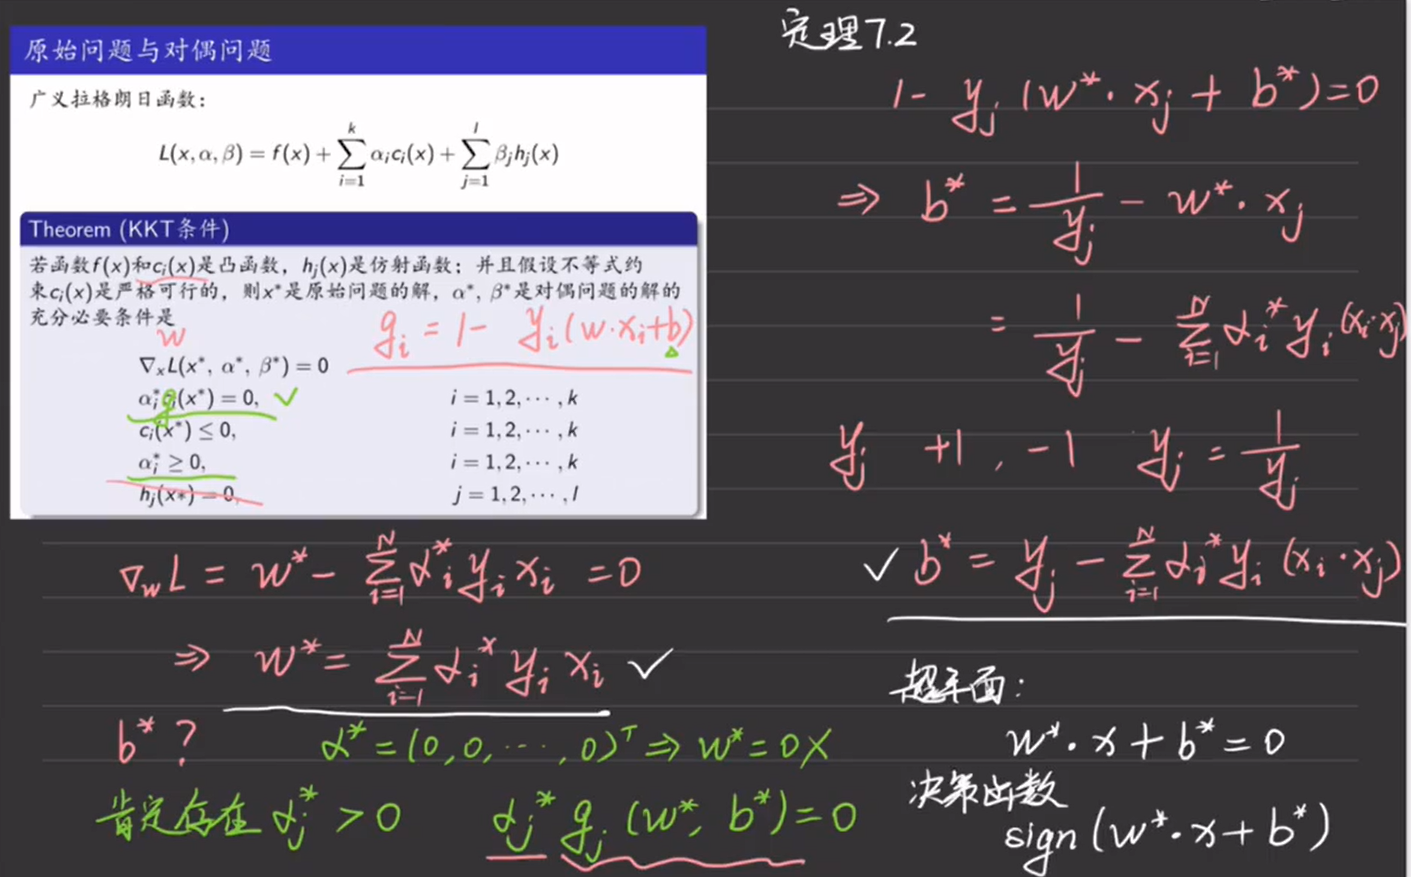 原始问题与对偶问题
广义拉格朗日函数：
L(x, α, β) = f(x) + ∑_{i=1}^{k} α_i c_i(x) + ∑_{j=1}^{l} β_j h_j(x)
Theorem (KKT条件)
若函数f(x)和c_i(x)是凸函数，h_j(x)是仿射函数；并且假设不等式约
束c_i(x)是严格可行的，则x*是原始问题的解，α*, β*是对偶问题的解的
充分必要条件是
w
g_i = 1 - y_i (w·x_i + b)
∇_x L(x*, α*, β*) = 0
α_i* g_i(x*) = 0, ✓ i = 1, 2, ⋯, k
c_i(x*) ≤ 0, i = 1, 2, ⋯, k
α_i* ≥ 0, i = 1, 2, ⋯, k
h_j(x*) = 0, j = 1, 2, ⋯, l
∇_w L = w* - ∑_{i=1}^{N} α_i* y_i x_i = 0
⇒ w* = ∑_{i=1}^{N} α_i* y_i x_i ✓
b* ?
α* = (0, 0, ⋯, 0)^T ⇒ w* = 0 ×
肯定存在 α_j* > 0
α_j* g_j (w*, b*) = 0
定理7.2
1 - y_j (w*·x_j + b*) = 0
⇒ b* = 1/y_j - w*·x_j
= 1/y_j - ∑_{i=1}^{N} α_i* y_i (x_i·x_j)
y_j +1, -1 y_j = 1/y_j
✓ b* = y_j - ∑_{i=1}^{N} α_i* y_i (x_i·x_j)
超平面：
w*·x + b* = 0
决策函数
sign (w*·x + b*)